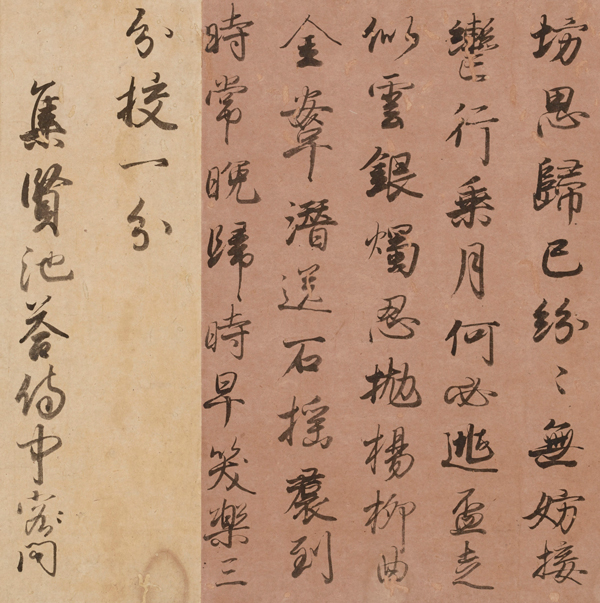 坊思歸已紛〻無妨按
轡行乘月何必逃盃走
似雲銀燭忍拋楊柳曲
金鞌潛送石榴裠到
時常晚歸時早笑樂三
分校一分
集賢池荅侍中問